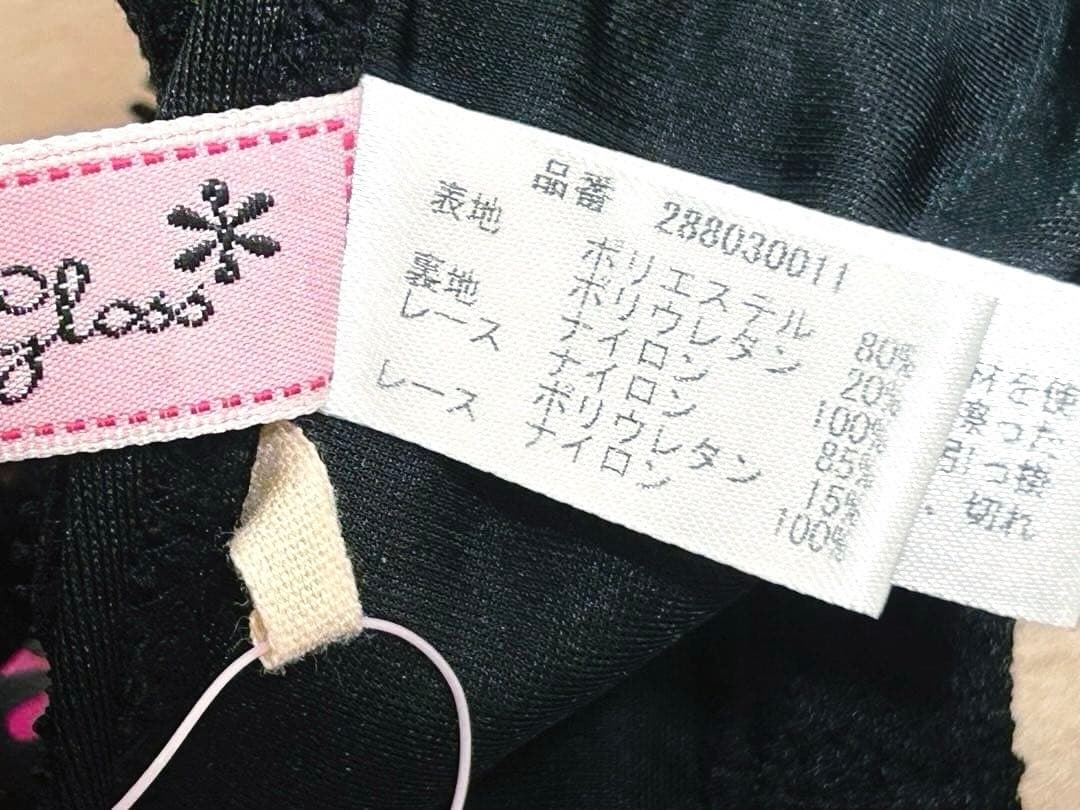 gloss
品番 288030011
表地 ポリエステル 80%
ポリウレタン 20%
裏地 ナイロン 100%
レース ナイロン 85%
ポリウレタン 15%
レース ナイロン 100%
材を使
引っ掛
切れ